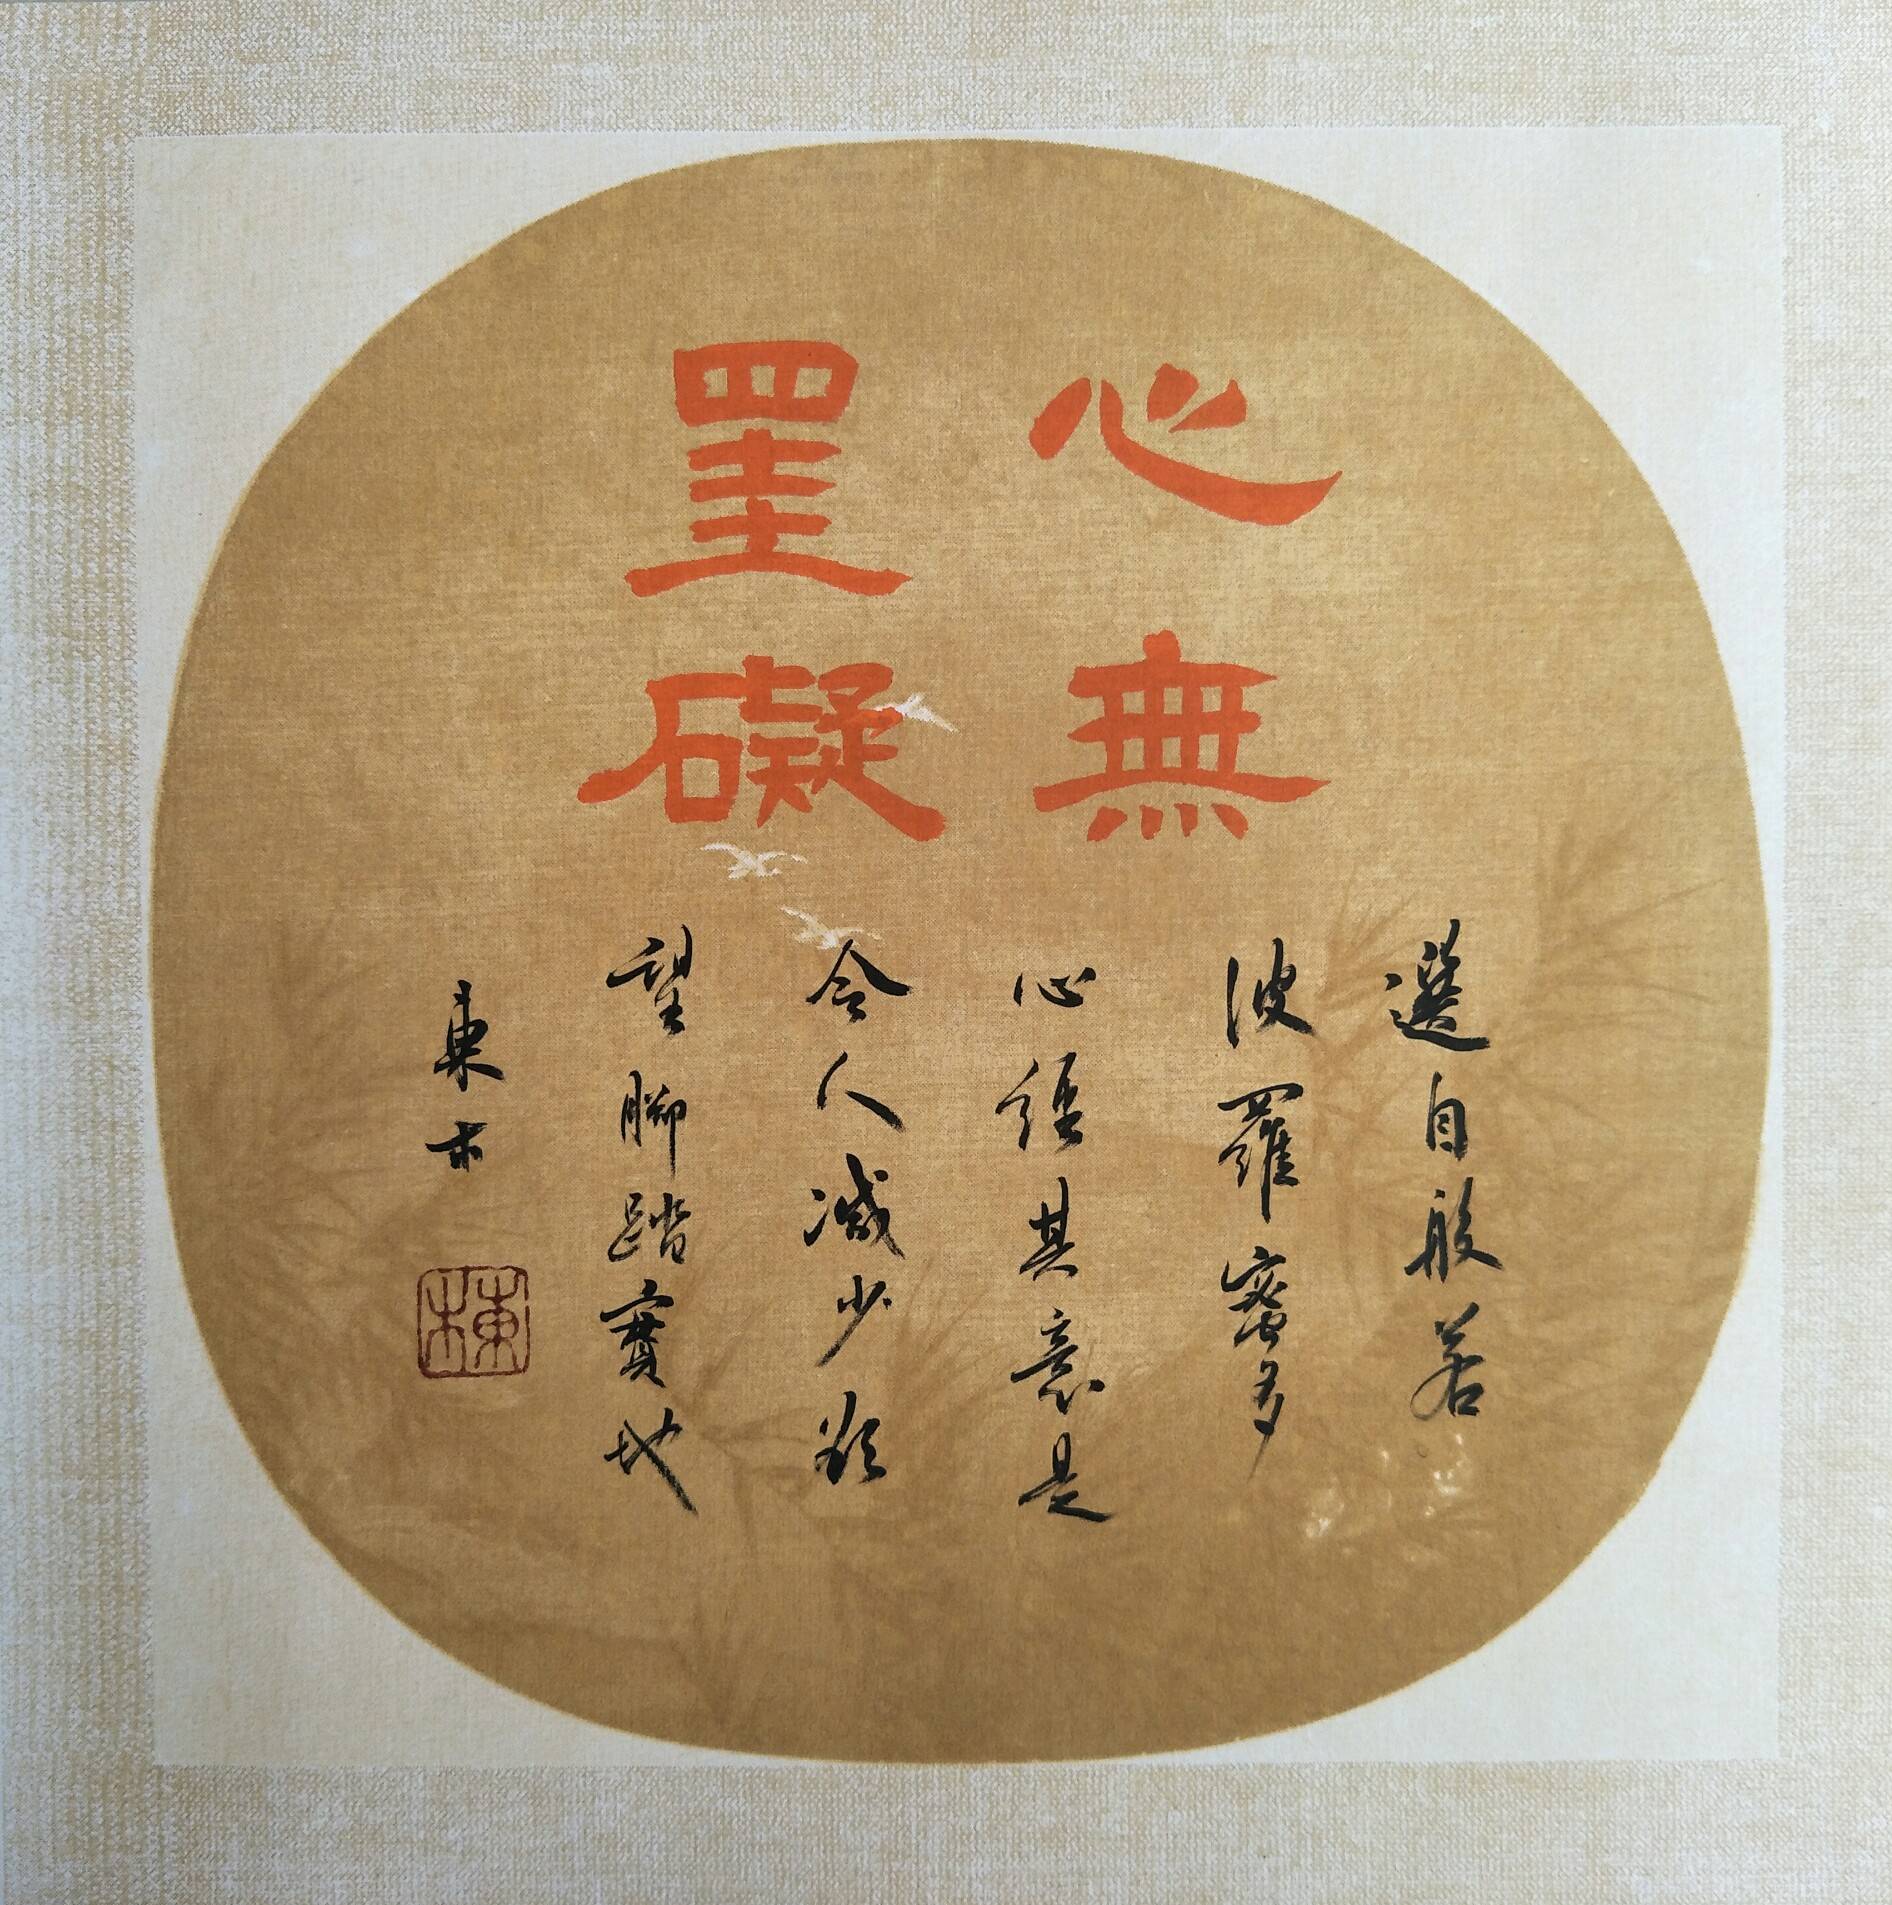 心無
罣礙
選自般若
波羅蜜多
心經其意是
令人減少欲
望腳踏實地
東木
東木